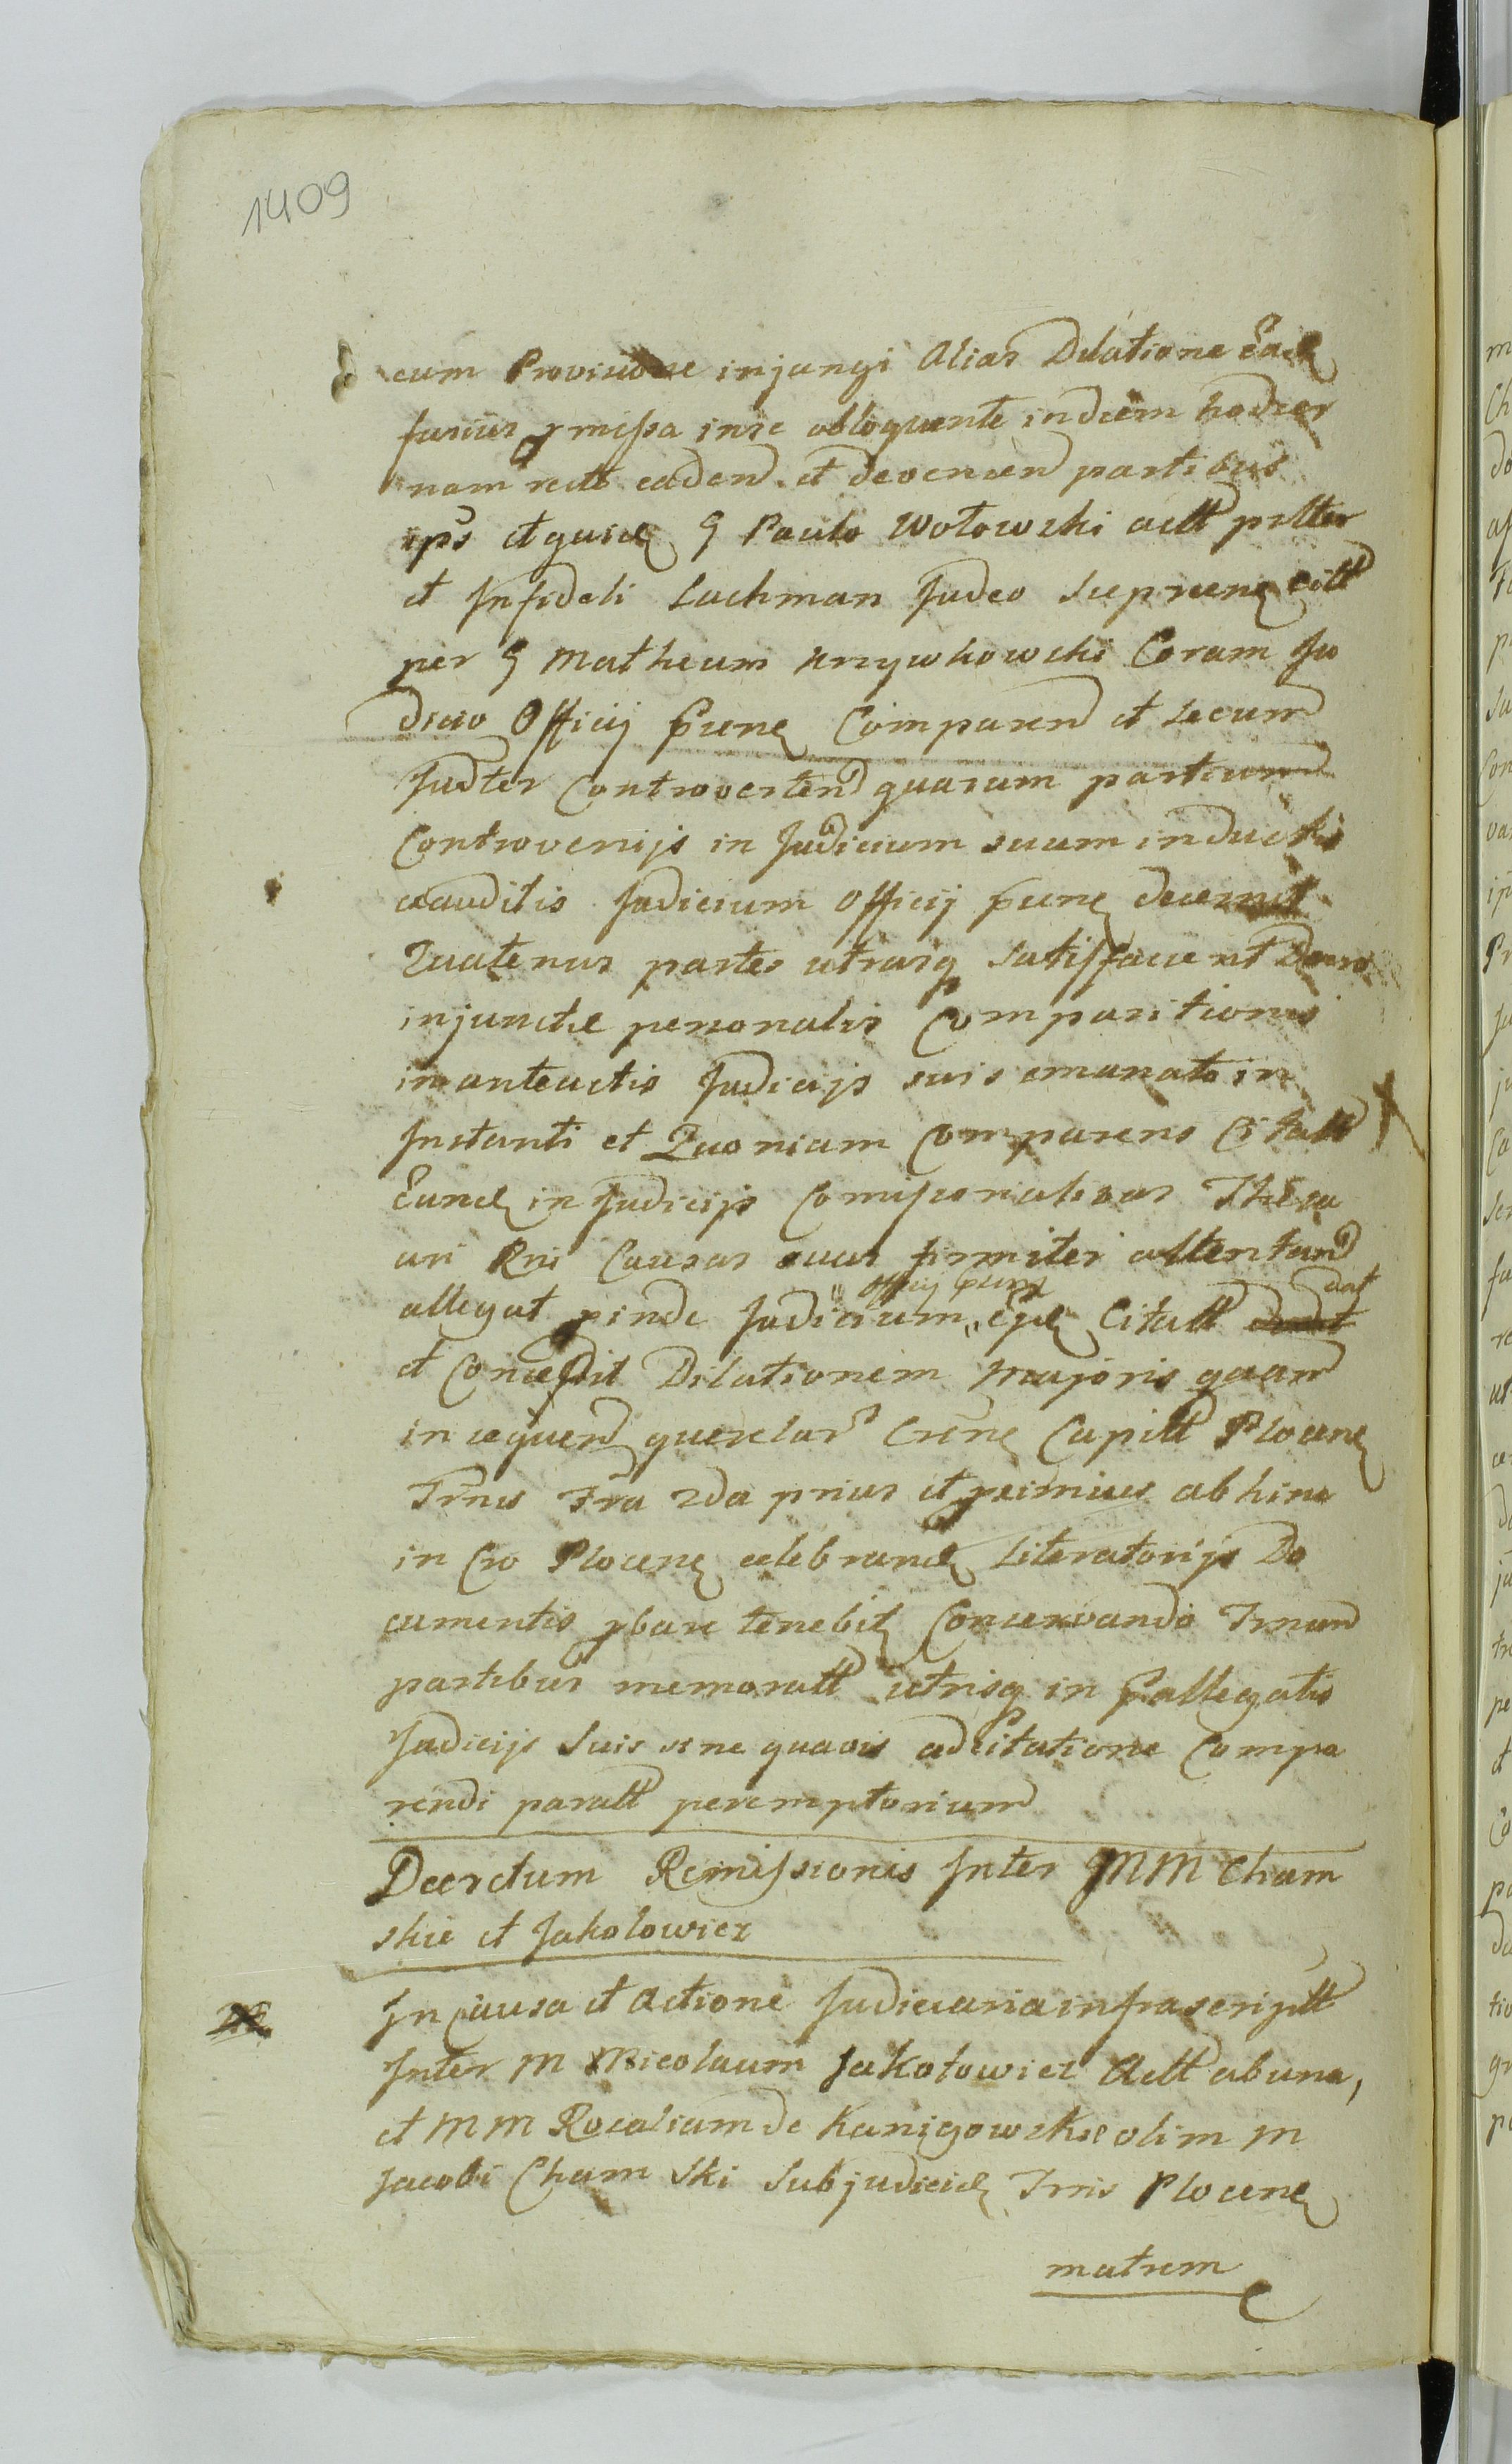 1409
cum Provisione injungi Alias Dilatione Ead
fusius pmissa in se obloquente in diem hodier
nam recte cadend et devenien partibus
ips et quid G Paulo Wołowski actt psltter
et Infideli Lachman Judeo Supreme citt
per G Matheum Krzywkowski Coram Ju
dicio Officij psenc Comparen et secum
Judter Controverten quarum partium
Controversijs in Judicium suum inductis
exauditis Judicium Officij psenc decernit
Quatenus partes utrasq satisfacient Decreto
injunctæ personalis Comparitionis
in anteactis Judicijs suis emanato in
Instanti et Quoniam Comparens Citatt
Eund in Judicijs Comissionalibus Thesa
uri Rni Causas suas firmiter attentand
allegat pinde Judicium " Officij psent " Ejd Citatt dedit dat
et Concessit Dilationem Majoris quam
in sequend querelar Crene Capitt Plocene
Trnis Fra 2da prius et primius abhinc
in Cro Plocene celebrand Literatorijs Do
cumentis pbare tenebit Conservando Trnum
partibus memoratt utrisq in pallegatis
Judicijs Suis sine quavis adcitatione Compa
rendi paratt peremptorium
Decretum Remissionis Inter GMM Cham
skie et Jakołowicz
In Causa et Actione Judiciaria infrascriptt
Inter M Nicolaum Jakołowicz Actt ab una,
et MM Rosaliam de Kanigowskie olim M
Jacobi Chamski Subjudicid Trris Plocene
matrem